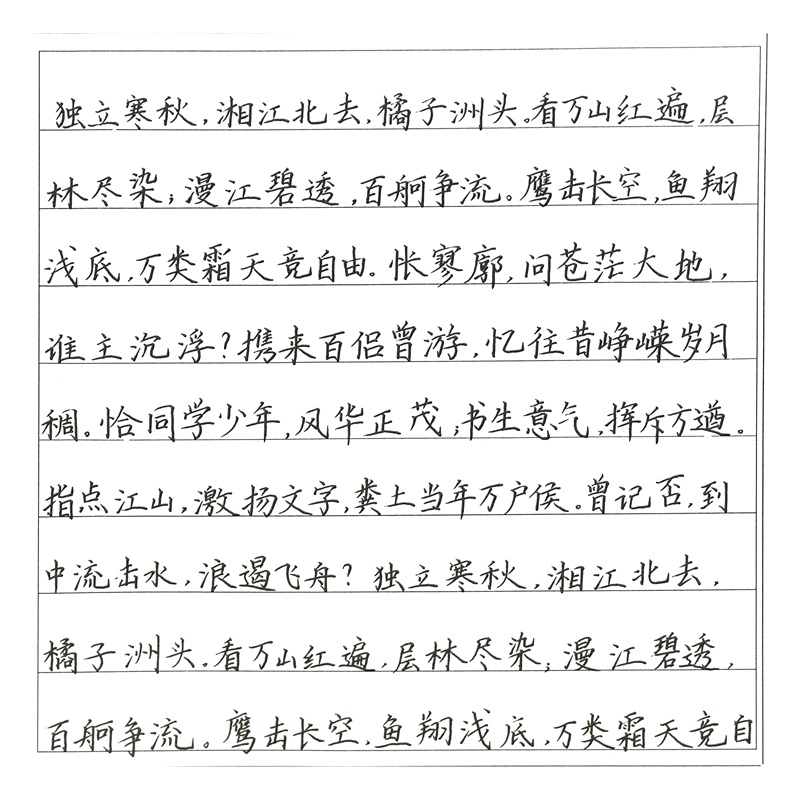 独立寒秋,湘江北去,橘子洲头。看万山红遍,层
林尽染;漫江碧透,百舸争流。鹰击长空,鱼翔
浅底,万类霜天竞自由。怅寥廓,问苍茫大地,
谁主沉浮?携来百侣曾游,忆往昔峥嵘岁月
稠。恰同学少年,风华正茂;书生意气,挥斥方遒。
指点江山,激扬文字,粪土当年万户侯。曾记否,到
中流击水,浪遏飞舟?独立寒秋,湘江北去,
橘子洲头。看万山红遍,层林尽染;漫江碧透,
百舸争流。鹰击长空,鱼翔浅底,万类霜天竞自